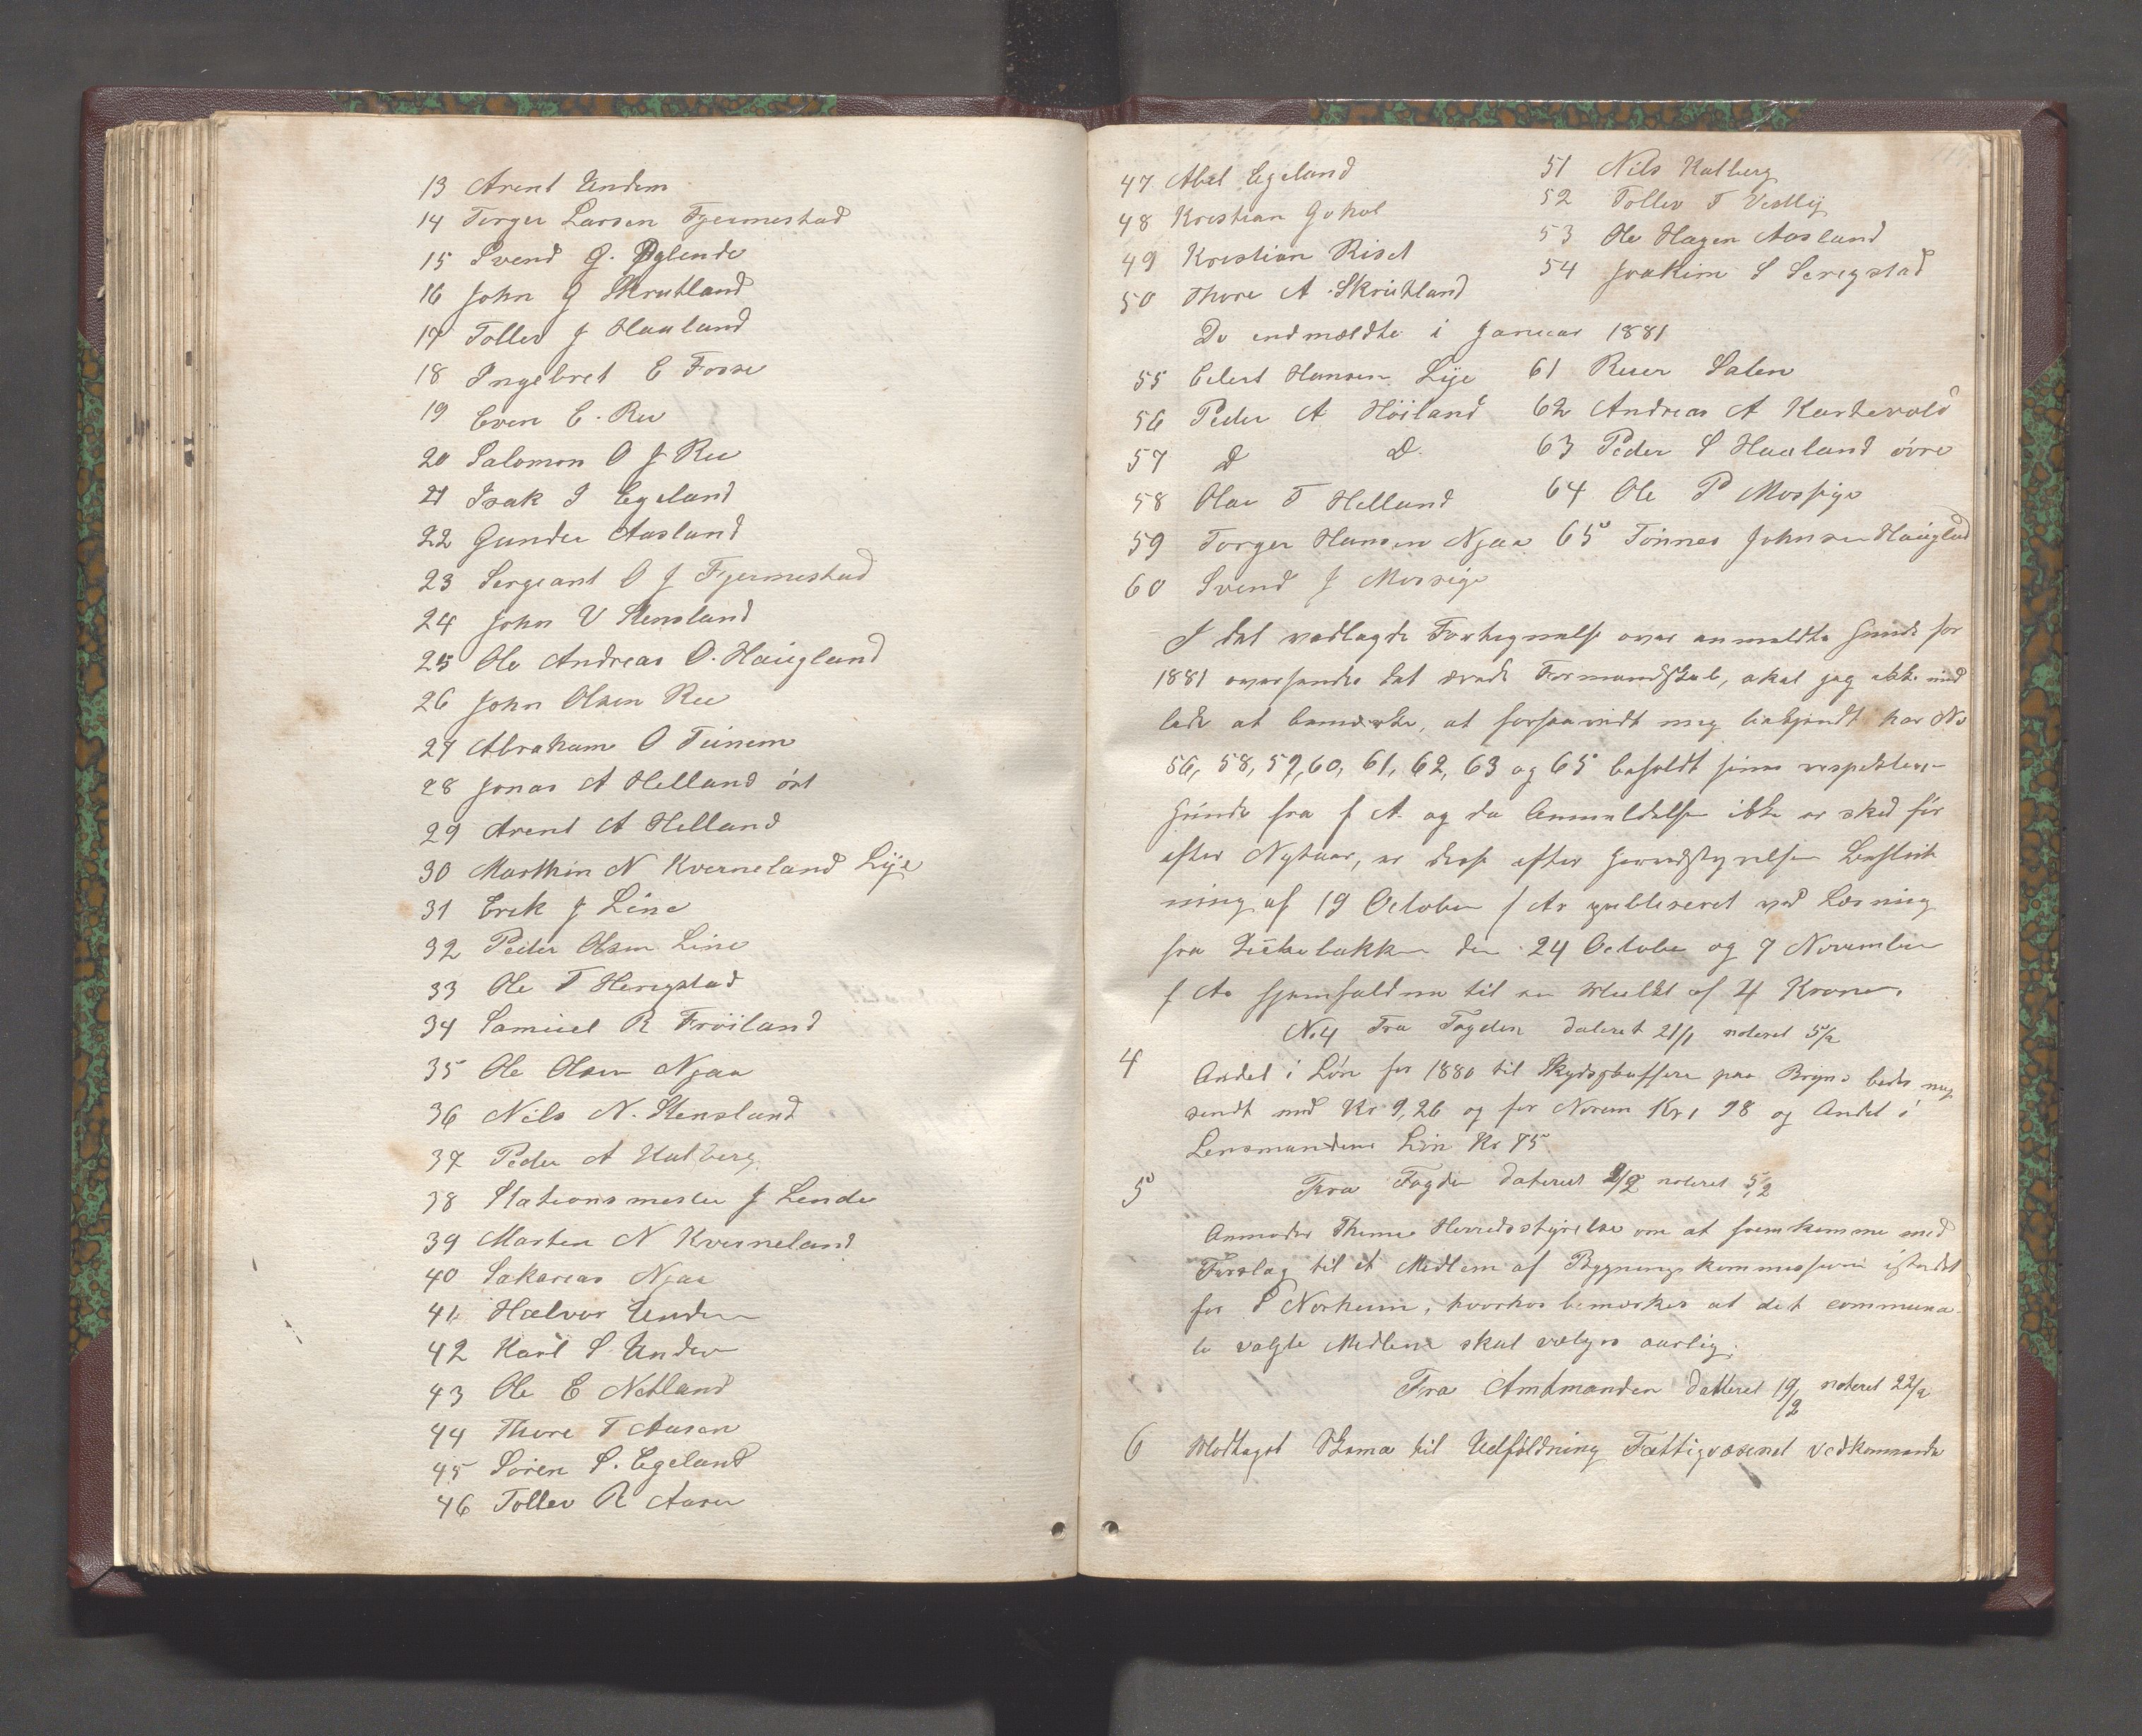 13 Arent Undem
14 Terger Larsen Fjermestad
15 Svend G. Øglende
16 John G Skrutland
17 Tollev J Haaland
18 Ingebret E Fosse
19 Even E. Re
20 Salomon O J Re
21 Isak I Egeland
22 Gunder Aasland
23 Sergeant O J Fjermestad
24 John V Stensland
25 Ole Andreas O. Haugland
26 John Olsen Re
27 Abraham O Tunem
28 Jonas A Helland öst
29 Arent A Helland
30 Marthin N Kverneland Lye
31 Erik J Line
32 Peder Olsen Line
33 Ole T Herigstad
34 Samuel R Fröiland
35 Ole Olsen Njaa
36 Nils N. Stensland
37 Peder A Kalberg
38 Stationsmester J Lende
39 Marten N Kverneland
40 Sakarias Njaa
41 Halvor Undem
42 Karl S Undem
43 Ole E Netland
44 Thore T Aasen
45 Sören S. Egeland
46 Tollev R Aasen
47 Abel Egeland
48 Kristian Gokol
49 Kristian Riset
50 Thore A Skrutland
51 Nils Kalberg
52 Tollev T Vestly
53 Ole Hagen Aasland
54 Joakim S Serigstad
De indmældte i Januar 1881
55 Eilert Hansen Lye
56 Peder A Höiland
57 D D
58 Olav T Helland
59 Torger Hansen Njaa
60 Svend J Mossige
61 Reier Salen
62 Andreas A Kartevold
63 Peder S Haaland övre
64 Ole P Mossige
65 Tönnes Johnsen Hauglad
I det vedlagde Fortegnelse over anmeldte Hunde for
1881 oversendes det ærede Formandskab, skal jeg ikke und
lade at bemærke, at forsaavidt mig bekjendt har No
56, 58, 59, 60, 61, 62, 63 og 65 beholdt sine respektive
Hunde fra f A. og da Anmeldelsen ikke er sked før
efter Nytaar, er disse efter Herredstyrelsens Beslut
ning af 19 October f Ar publiseret ved Læsning
fra Kirkebakken den 24 October og 7 November
f Ar hjemfaldne til en Mulkt af 4 Kroner.
No 4 Fra Fogden dateret 21/1 noteret 5/2
4 Andel i Lön for 1880 til Skydsskaffere paa Bryne bedes
sendt med Kr 9,26 og for Norem Kr 1 98 og Andel i
Lensmandens Lön Kr 75
5 Fra Fogden dateret 2/2 noteret 5/2
Anmoder Thime Herredsstyrelse om at fremkomme med
Forslag til et Medlem af Bygningskommissionen istedet
for S Norheim, hvorhos bemærkes at det communa
le valgte Medlem skal vælges aarlig.
Fra Amtmanden datteret 19/2 noteret 22/2
6 Modtaget Skema til Udfyldning Fattigvæsenet vedkommende